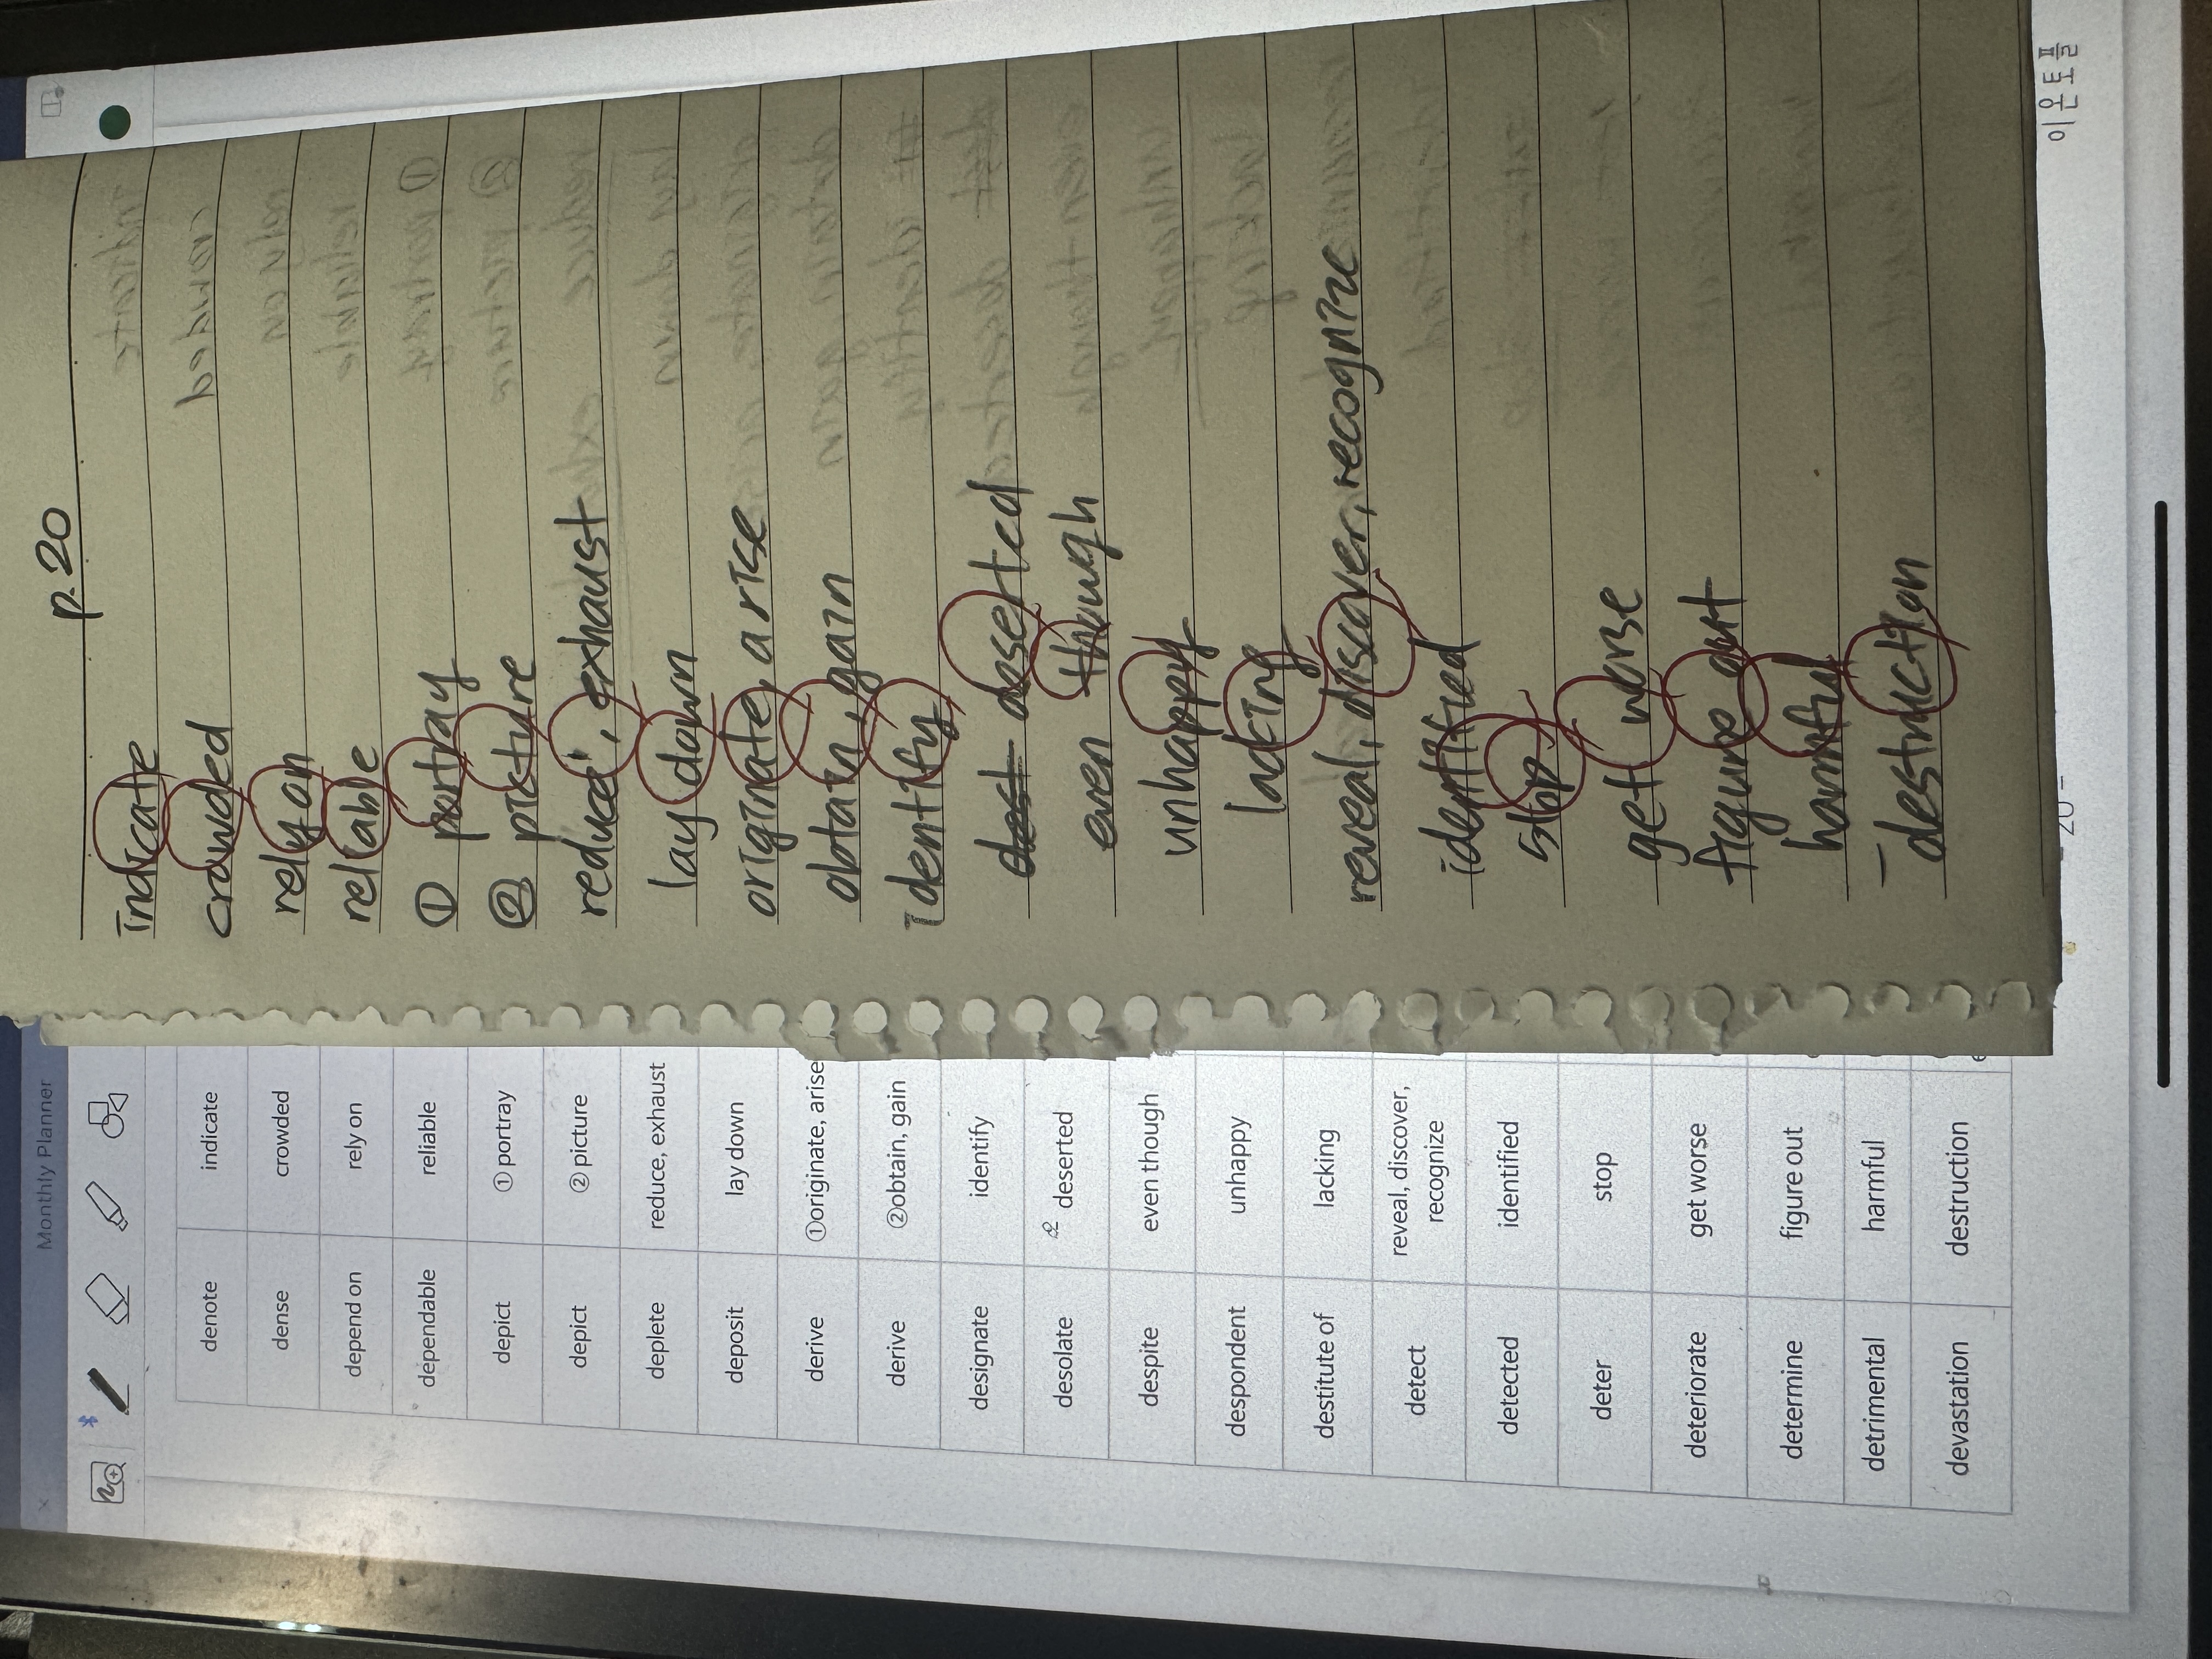 Monthly Planner
denote indicate
dense crowded
depend on rely on
dependable reliable
depict ① portray
depict ② picture
deplete reduce, exhaust
deposit lay down
derive ①originate, arise
derive ②obtain, gain
designate identify
desolate deserted
despite even though
despondent unhappy
destitute of lacking
detect reveal, discover,
recognize
detected identified
deter stop
deteriorate get worse
determine figure out
detrimental harmful
devastation destruction
p.20
indicate
crowded
rely on
reliable
① portray
② picture
reduce, exhaust
lay down
originate, arise
obtain, gain
identify
deserted
even though
unhappy
lacking
reveal, discover, recognize
identified
stop
get worse
figure out
harmful
destruction
20 -
이윤토플